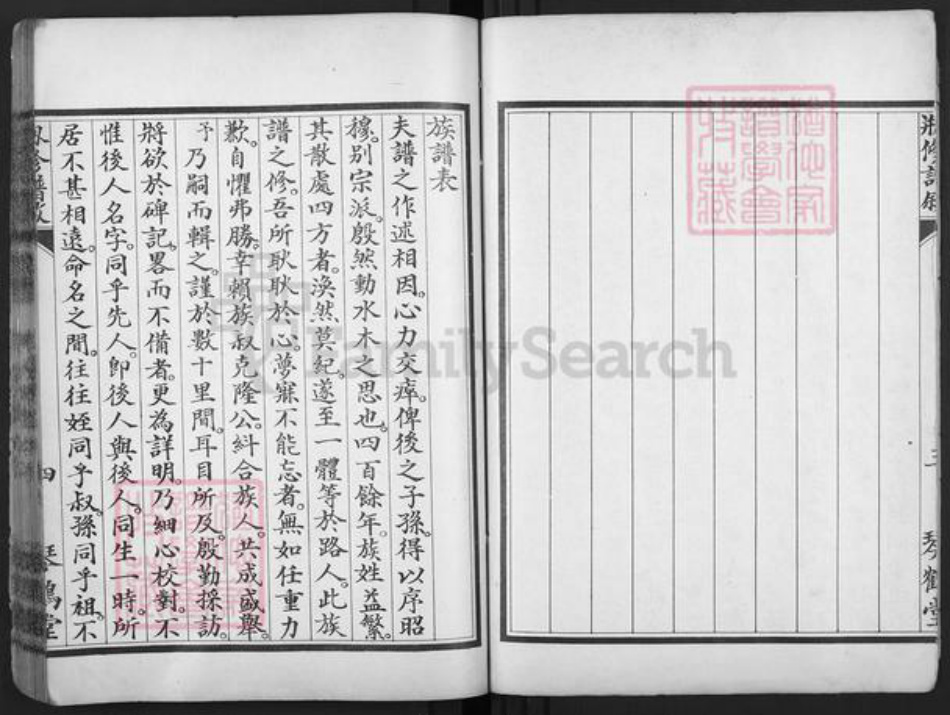 琴鶴堂
族譜表
夫譜之作述相因。心力交瘁。俾後之子孫。得以序昭
穆。別宗派。殷然動水木之思也。四百餘年。族姓益繁。
其散處四方者。渙然莫紀。遂至一體等於路人。此族
譜之修。吾所耿耿於心。夢寐不能忘者。無如任重力
歉。自懼弗勝。幸賴族叔克隆公。糾合族人。共成盛舉。
予乃嗣而輯之。謹於數十里間。耳目所及。殷勤採訪。
將欲於碑記。畧而不備者。更為詳明。乃細心校對。不
惟後人名字。同乎先人。卽後人與後人。同生一時。所
居不甚相遠。命名之間。往往姪同乎叔。孫同乎祖。不
四
琴鶴堂
FamilySearch